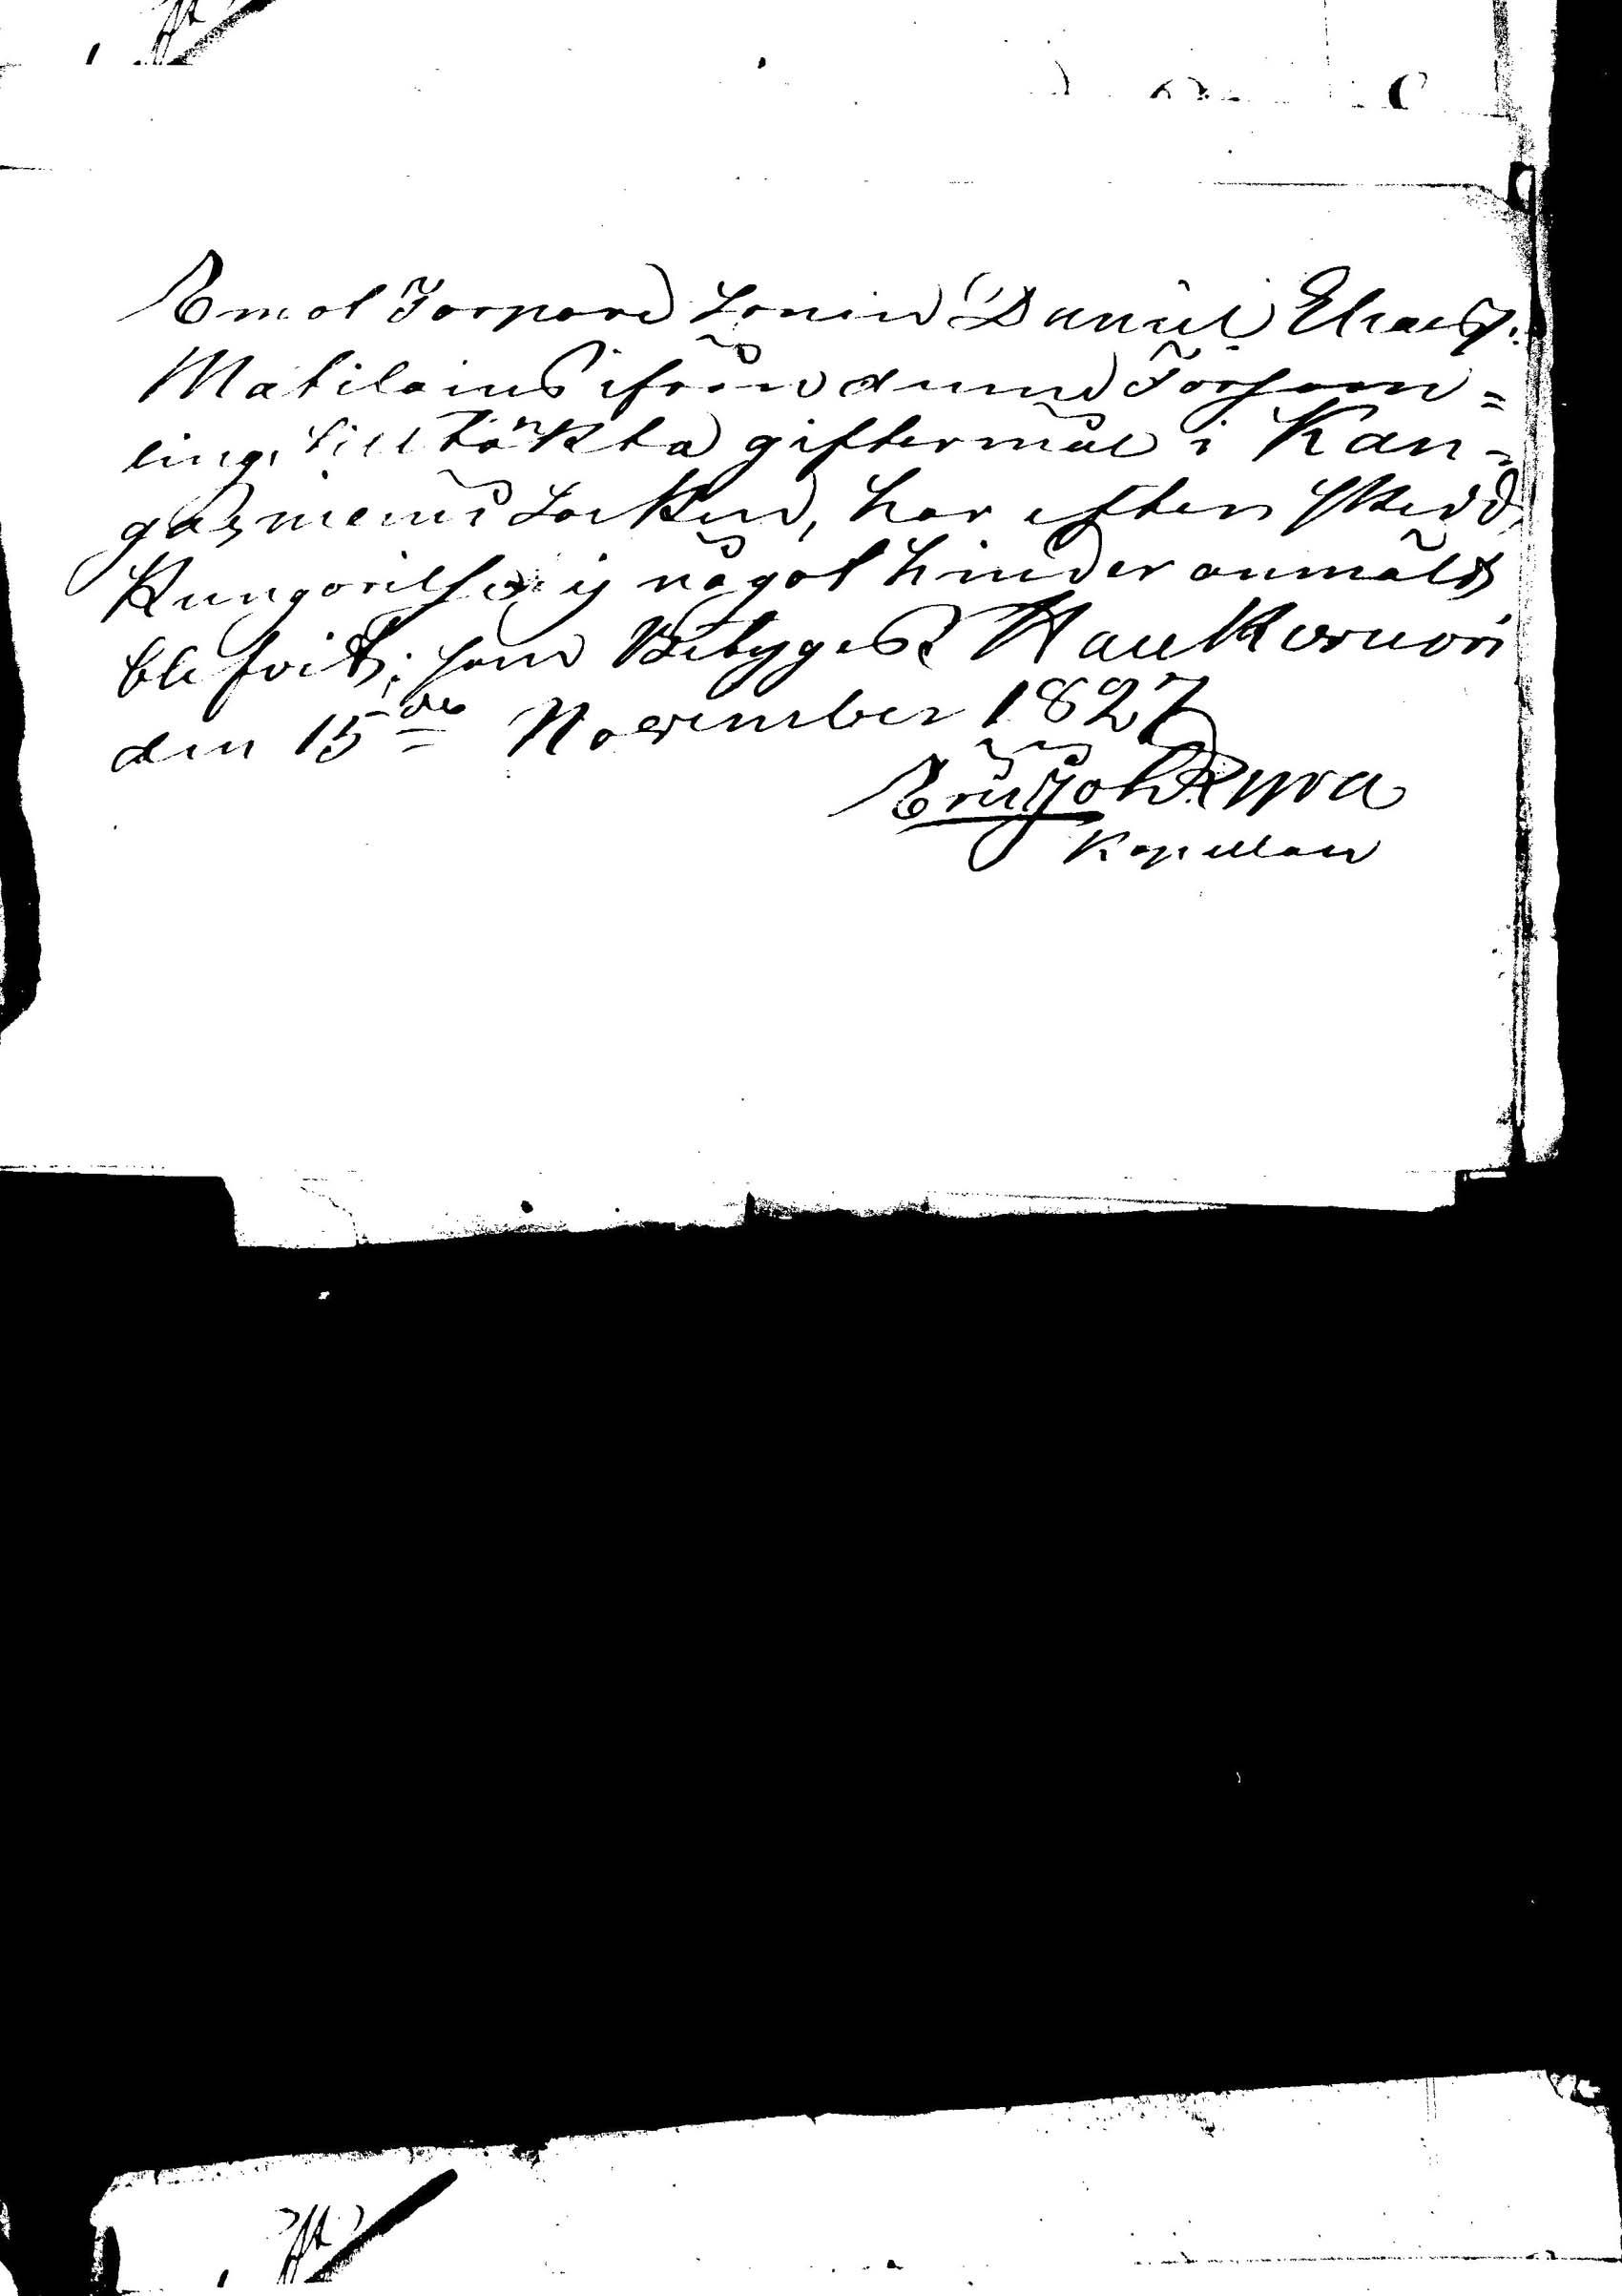 Emot Torpare Sonen Daniel Eliaes.
Matilains ifrån denne Försam=
ling, till tänkta giftermål i Kan-
gasniemi Socken, har efter skedd
Kungörelse ej något hinder anmält
blefvit; som Betygas Haukivuori
den 15de November 1827
Er: Joh Kyrra
Kapellan